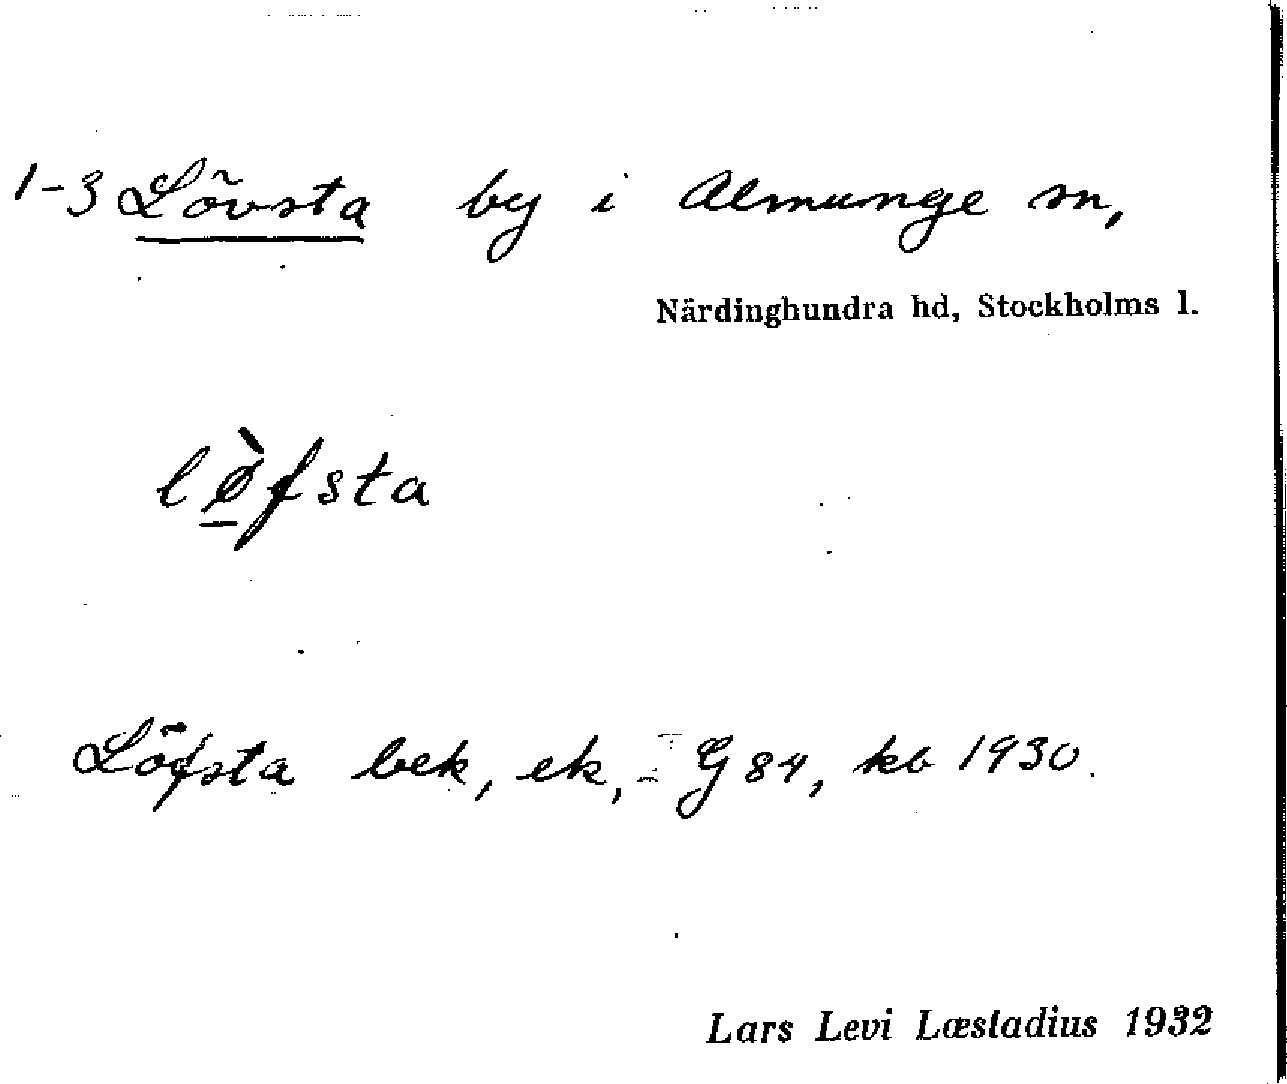 1-3 Lövsta by i Almunge sn,
Närdinghundra hd, Stockholms l.
lø̀fsta
Löfsta bek, ek, - G 84, kb 1930.
Lars Levi Læstadius 1932